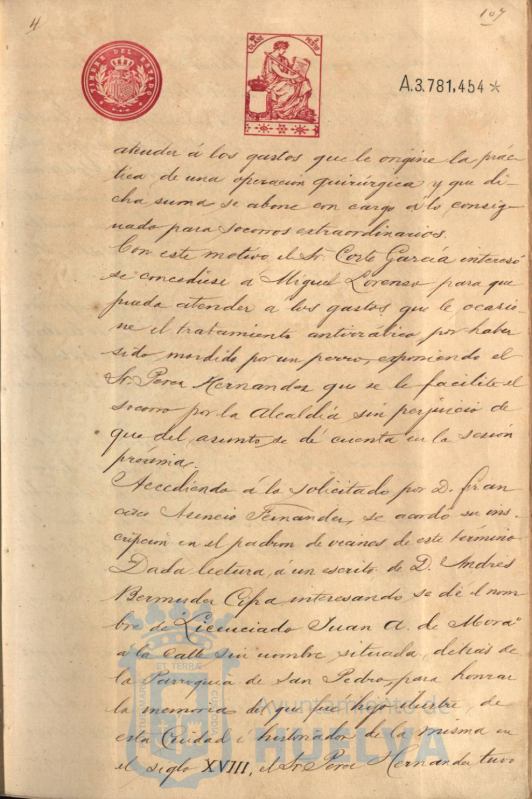 4
107
TIMBRE DEL ESTADO
A.3.781.454*
atender á los gastos que le origine la prác-
tica de una operacion quirúrgica y que di-
cha suma se abone con cargo á lo consig-
nado para socorros extraordinarios.
Con este motivo el Sr. Corte García interesó
se concediese á Miguel Lorenzo para que
pueda atender a los gastos que le ocasio-
ne el tratamiento antirrabico, por haber
sido mordido por un perro, exponiendo el
Sr. Perez Hernandez que se le facilite el
socorro por la Alcaldía sin perjuicio de
que del asunto se dé cuenta en la sesión
próxima.
Accediendo á lo solicitado por D. Fran
cisco Asencio Fernandez, se acordó su ins-
cripcion en el padron de vecinos de este término
Dada lectura á un escrito de D. Andres
Bermudez Cifra interesando se dé el nom
bre de Licenciado Juan A. de Mora
á la Calle sin nombre situada detras de
la Parroquia de San Pedro, para honrar
la memoria del que fué hijo ilustre de
esta Ciudad é historiador de la misma en
el siglo XVIII, el Sr. Perez Hernandez tuvo
Ayuntamiento de
HUELVA
ET TERRÆ
CUSTODIA